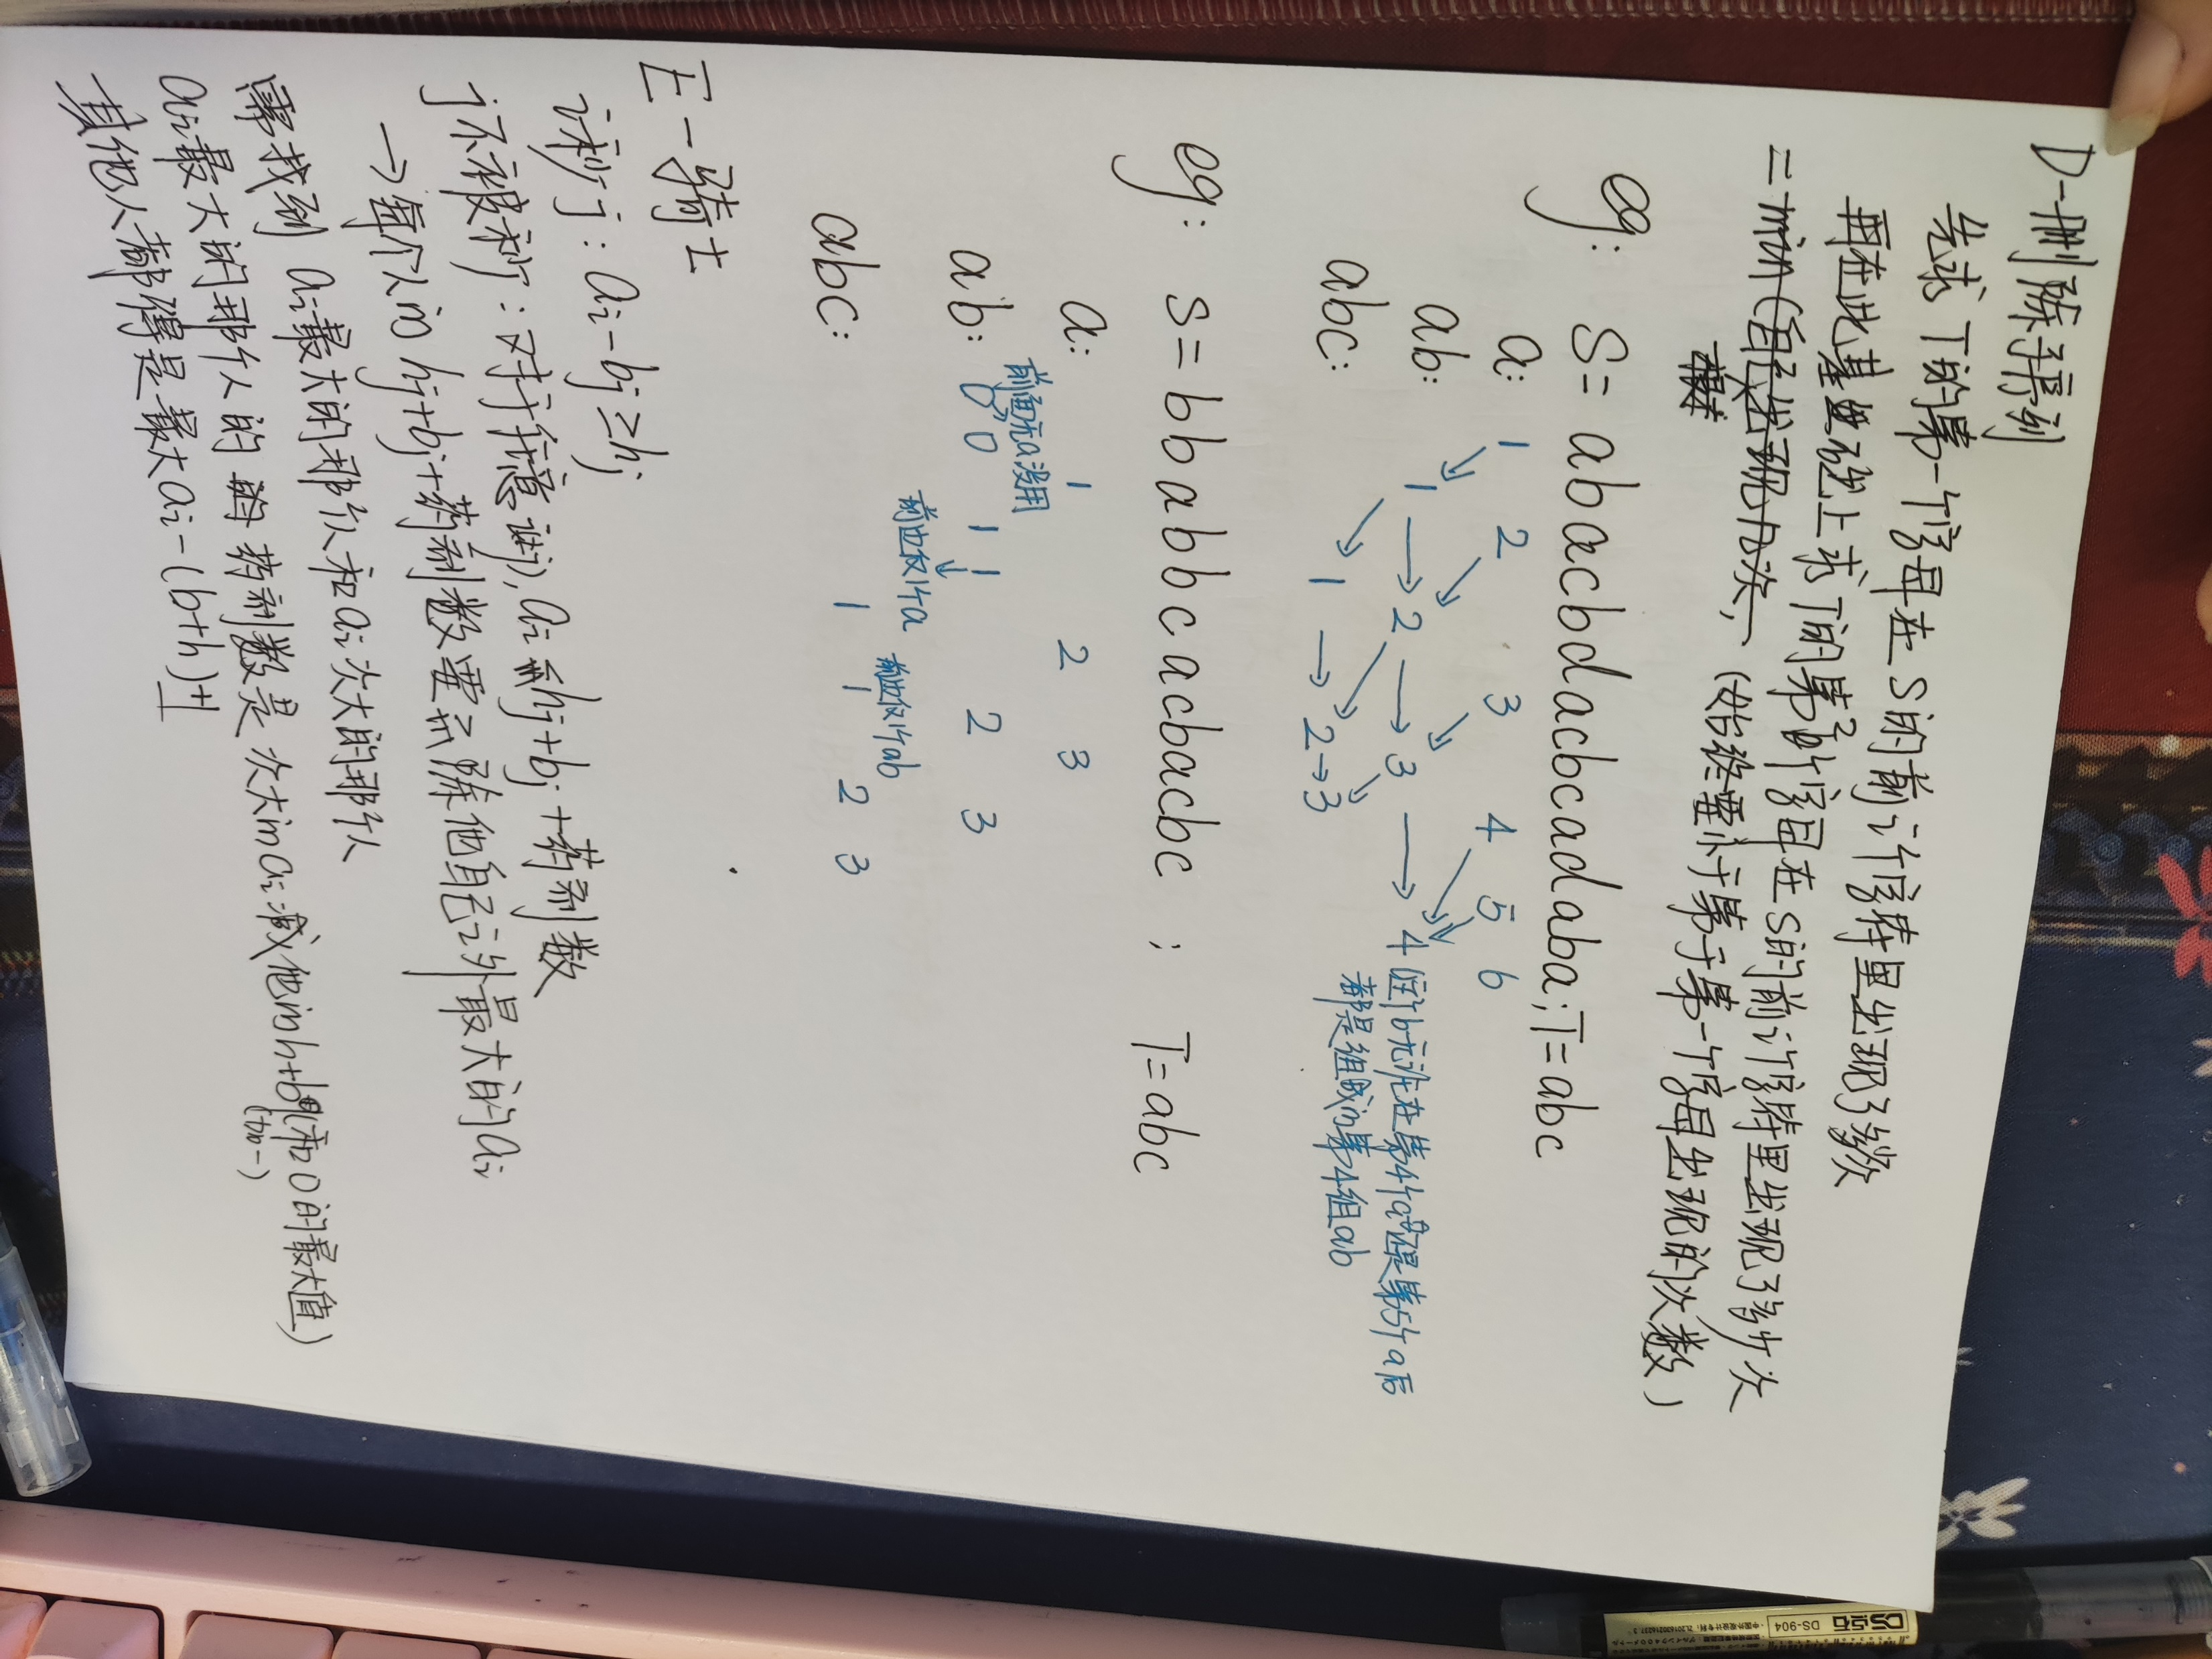 D-删除子序列
先求T的第一个字母在S的前i个字符里出现了多少次
再在此基础上求T的第二个字母在S的前i个字符里出现了多少次
=min(自己出现几次, (始终要小于等于第一个字母出现的次数)
eg: S=abacbdacbcadaba; T=abc
a: 1 2 3 4 5 6
ab: 1 2 3 4 这个b无论在第4个a后还是第5个a后
都是组成的第4组ab
abc: 1 2→3
eg: S=bbabbcacbacbc ; T=abc
a: 1 2 3
前面无a没用
ab: 0 0 1 1 2 3
前边仅1个a
前边仅1个ab
abc: 1 1 2 3
E-骑士
i秒j: ai-bj≥hj
j不被秒: 对于任意i, ai<hj+bj+药剂数
→每个人的hj+bj+药剂数要>除他自己之外最大的ai
需找到ai最大的那个人和ai次大的那个人
ai最大的那个人的药剂数是次大的ai减他的h+b(和0的最大值)
其他人都得是最大ai-(b+h)+1
DS-904